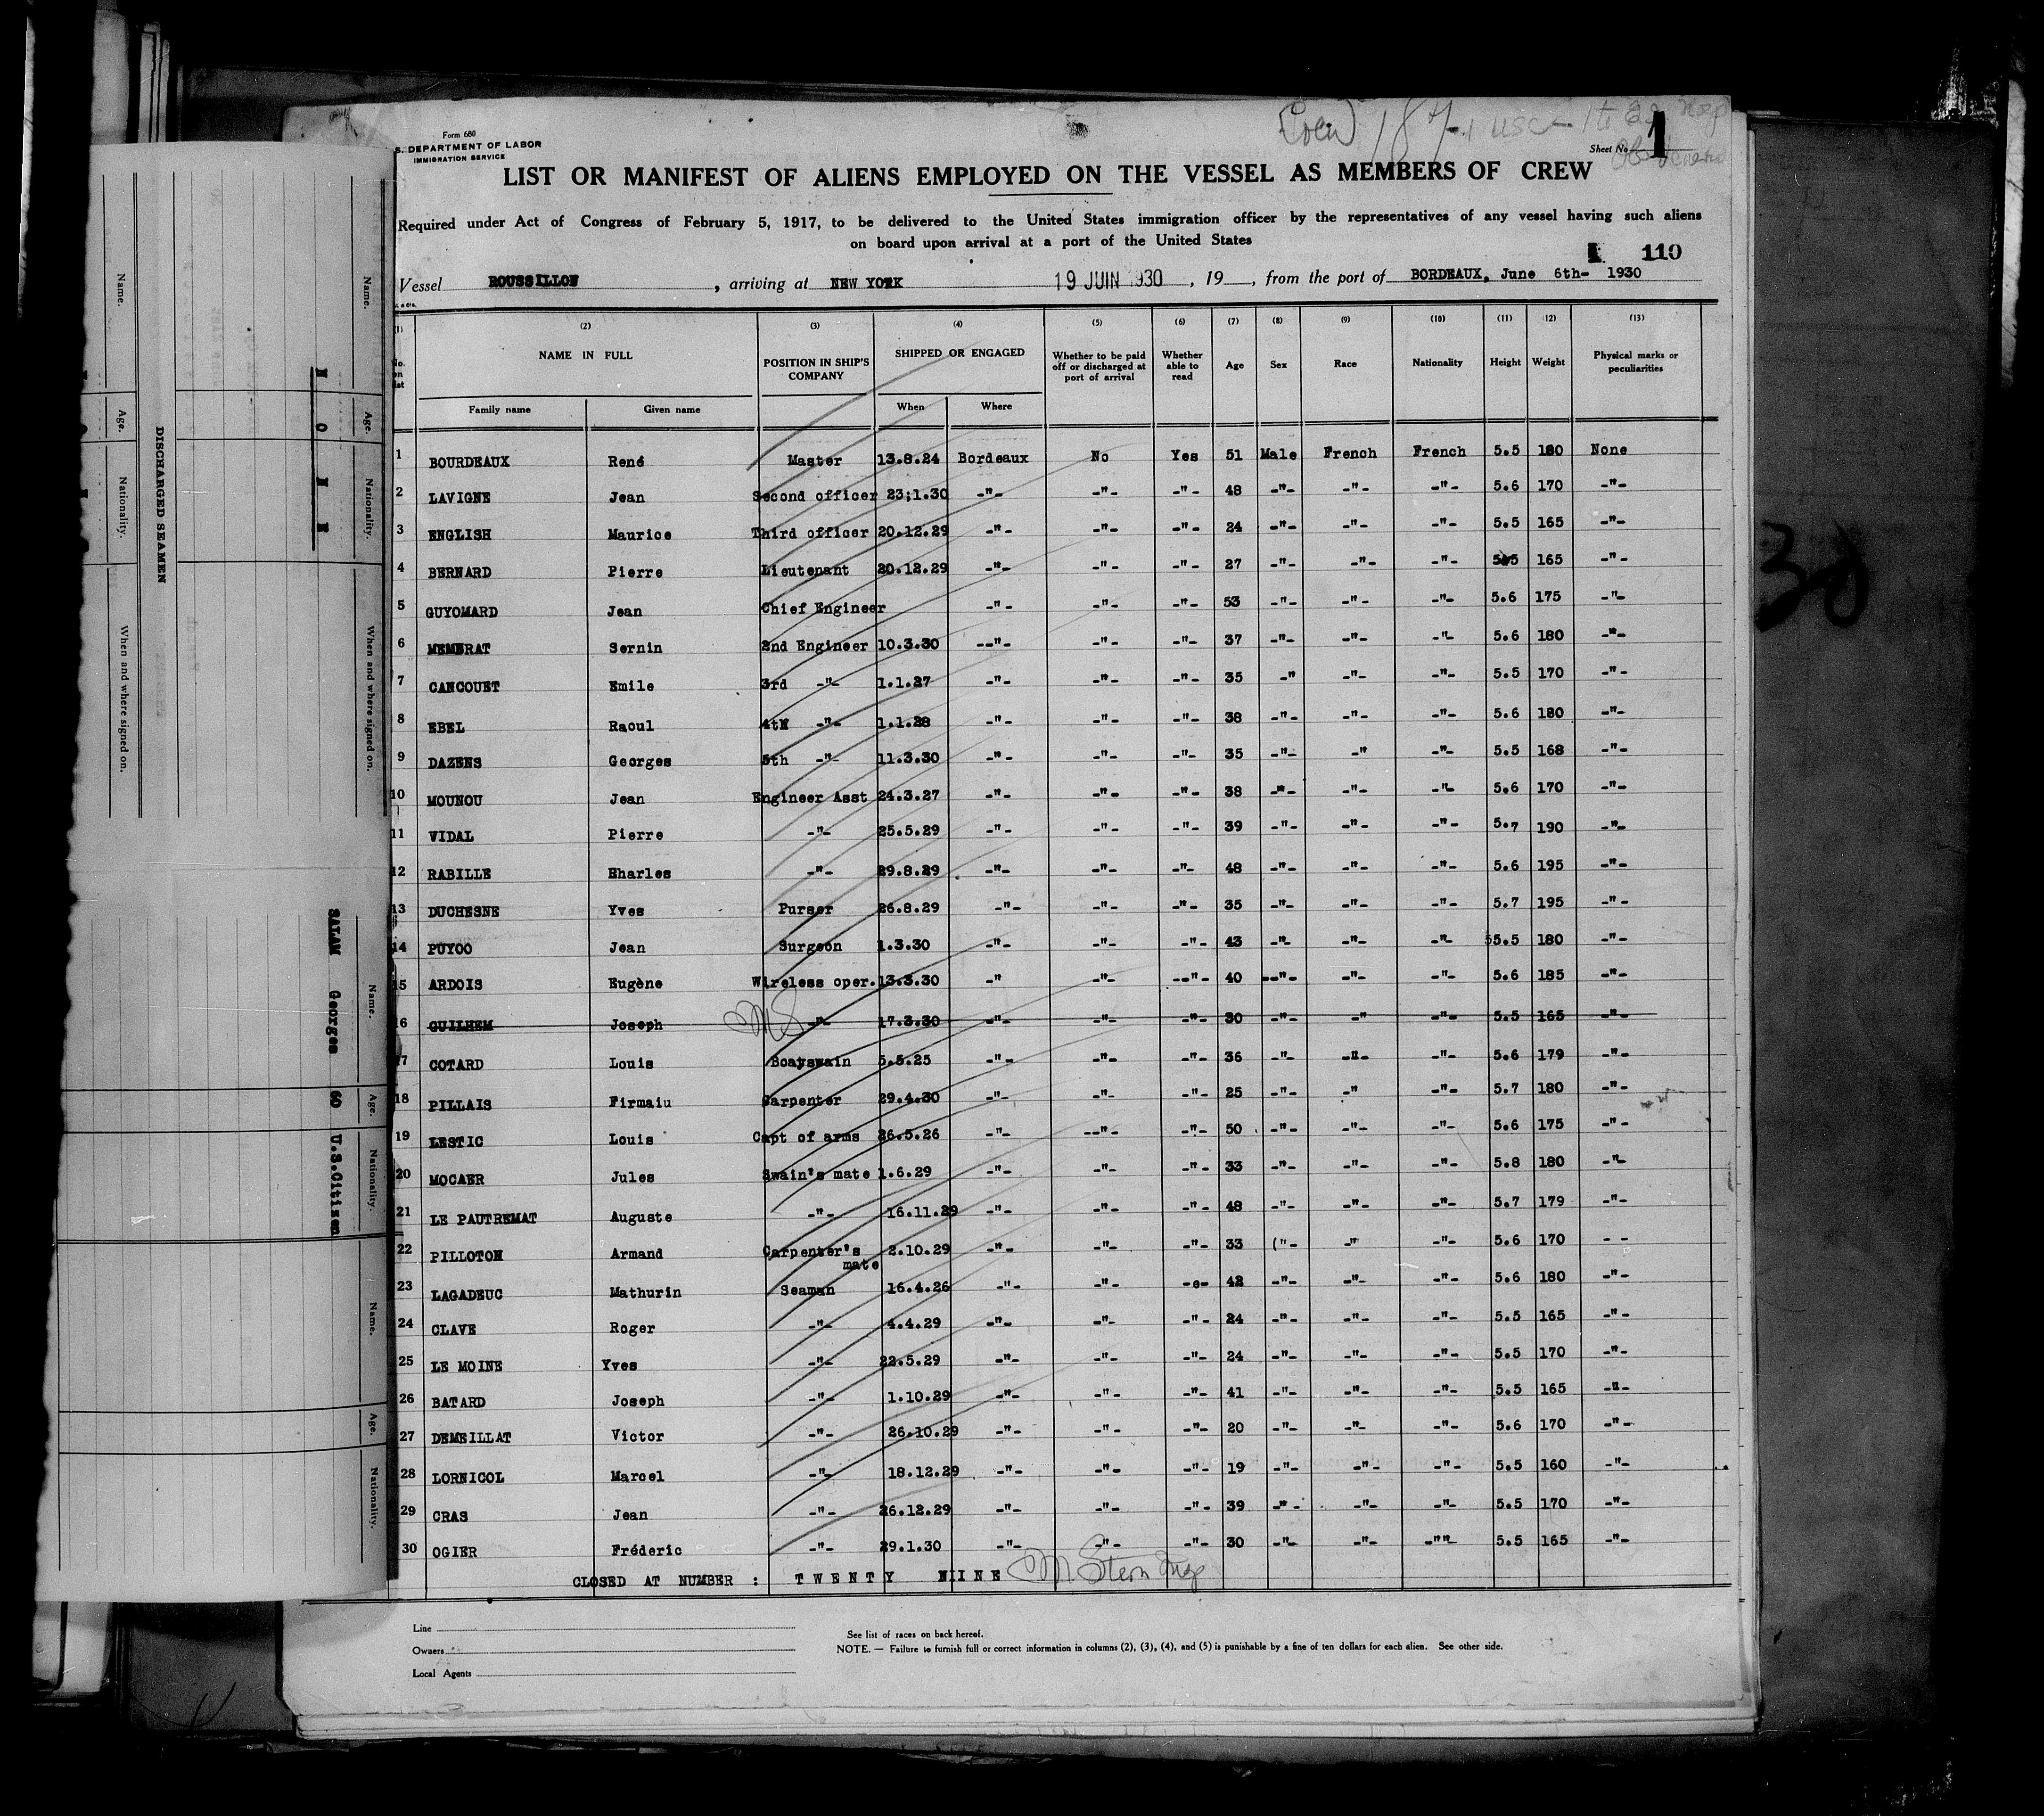 Form 680
S. DEPARTMENT OF LABOR
IMMIGRATION SERVICE
Sheet No. 1
LIST OR MANIFEST OF ALIENS EMPLOYED ON THE VESSEL AS MEMBERS OF CREW
Required under Act of Congress of February 5, 1917, to be delivered to the United States immigration officer by the representatives of any vessel having such aliens
on board upon arrival at a port of the United States
110
Vessel ROUSSILLON, arriving at NEW YORK 19 JUIN 1930, 19 , from the port of BORDEAUX, June 6th- 1930
(1) (2) (3) (4) (5) (6) (7) (8) (9) (10) (11) (12) (13)
No. on list NAME IN FULL POSITION IN SHIP'S COMPANY SHIPPED OR ENGAGED Whether to be paid off or discharged at port of arrival Whether able to read Age Sex Race Nationality Height Weight Physical marks or peculiarities
Family name Given name When Where
1 BOURDEAUX René Master 13.8.24 Bordeaux No Yes 51 Male French French 5.5 180 None
2 LAVIGNE Jean Second officer 23;1.30 -"- -"- -"- 48 -"- -"- -"- 5.6 170 -"-
3 ENGLISH Maurice Third officer 20.12.29 -"- -"- -"- 24 -"- -"- -"- 5.5 165 -"-
4 BERNARD Pierre Lieutenant 20.12.29 -"- -"- -"- 27 -"- -"- -"- 5.5 165 -"-
5 GUYOMARD Jean Chief Engineer -"- -"- -"- 53 -"- -"- -"- 5.6 175 -"-
6 MEMBRAT Sernin 2nd Engineer 10.3.30 --"- -"- -"- 37 -"- -"- -"- 5.6 180 -"-
7 CANCOUET Emile 3rd -"- 1.1.27 -"- -"- -"- 35 -" -"- -"- 5.5 170 -"-
8 EBEL Raoul 4th -"- 1.1.28 -"- -"- -"- 38 -"- -"- -"- 5.6 180 -"-
9 DAZENS Georges 5th -"- 11.3.30 -"- -"- -"- 35 -"- -" -"- 5.5 168 -"-
10 MOUNOU Jean Engineer Asst 24.3.27 -"- -"- -"- 38 -"- -"- -"- 5.6 170 -"-
11 VIDAL Pierre -"- 25.5.29 -"- -"- -"- 39 -"- -"- -"- 5.7 190 -"-
12 RABILLE Eharles -"- 29.8.29 -"- -"- -"- 48 -"- -"- -"- 5.6 195 -"-
13 DUCHESNE Yves Purser 26.8.29 -"- -"- -"- 35 -"- -"- -"- 5.7 195 -"-
14 PUYOO Jean Surgeon 1.3.30 -"- -"- -"- 43 -"- -"- -"- 55.5 180 -"-
15 ARDOIS Eugène Wireless oper. 13.3.30 -" -"- --"- 40 --"- -"- -"- 5.6 185 -"-
16 GUILHEM Joseph -"- 17.3.30 -"- -"- -"- 30 -"- -" -"- 5.5 165 -"-
17 COTARD Louis Boatswain 5.5.25 -"- -"- -"- 36 -"- -"- -"- 5.6 179 -"-
18 PILLAIS Firmaiu Carpenter 29.4.30 -"- -"- -"- 25 -"- -" -"- 5.7 180 -"-
19 LESTIC Louis Capt of arms 26.5.26 -"- --"- -"- 50 -"- -"- -"- 5.6 175 -"-
20 MOCAER Jules Swain's mate 1.6.29 -"- -"- -"- 33 -"- -"- -"- 5.8 180 -"-
21 LE PAUTREMAT Auguste -"- 16.11.29 -"- -"- -"- 48 -"- -"- -"- 5.7 179 -"-
22 PILLOTON Armand Carpenter's mate 2.10.29 -"- -"- -"- 33 ("- -"- -"- 5.6 170 - -
23 LAGADEUC Mathurin Seaman 16.4.26 -"- -"- -e- 42 -"- -"- -"- 5.6 180 -"-
24 CLAVE Roger -"- 4.4.29 -"- -"- -"- 24 -"- -"- -"- 5.5 165 -"-
25 LE MOINE Yves -"- 22.5.29 -"- -"- -"- 24 -"- -"- -"- 5.5 170 -"-
26 BATARD Joseph -"- 1.10.29 -"- -"- -"- 41 -"- -"- -"- 5.5 165 -"-
27 DEMEILLAT Victor -"- 26.10.29 -"- -"- -"- 20 -"- -"- -"- 5.6 170 -"-
28 LORNICOL Marcel -"- 18.12.29 -"- -"- -"- 19 -"- -"- -"- 5.5 160 -"-
29 CRAS Jean -"- 26.12.29 -"- -"- -"- 39 -"- -"- -"- 5.5 170 -"-
30 OGIER Fréderic -"- 29.1.30 -"- -"- -"- 30 -"- -"- -""- 5.5 165 -"-
CLOSED AT NUMBER : TWENTY NIINE M Stern Insp
Line
Owners
Local Agents
See list of races on back hereof.
NOTE. — Failure to furnish full or correct information in columns (2), (3), (4), and (5) is punishable by a fine of ten dollars for each alien. See other side.
DISCHARGED SEAMEN
Name. Age. Nationality. When and where signed on.
Name. Age. Nationality. When and where signed on.
Name. Age. Nationality.
SALAM Georges 60 U.S.Citizen
Name. Age. Nationality.
30